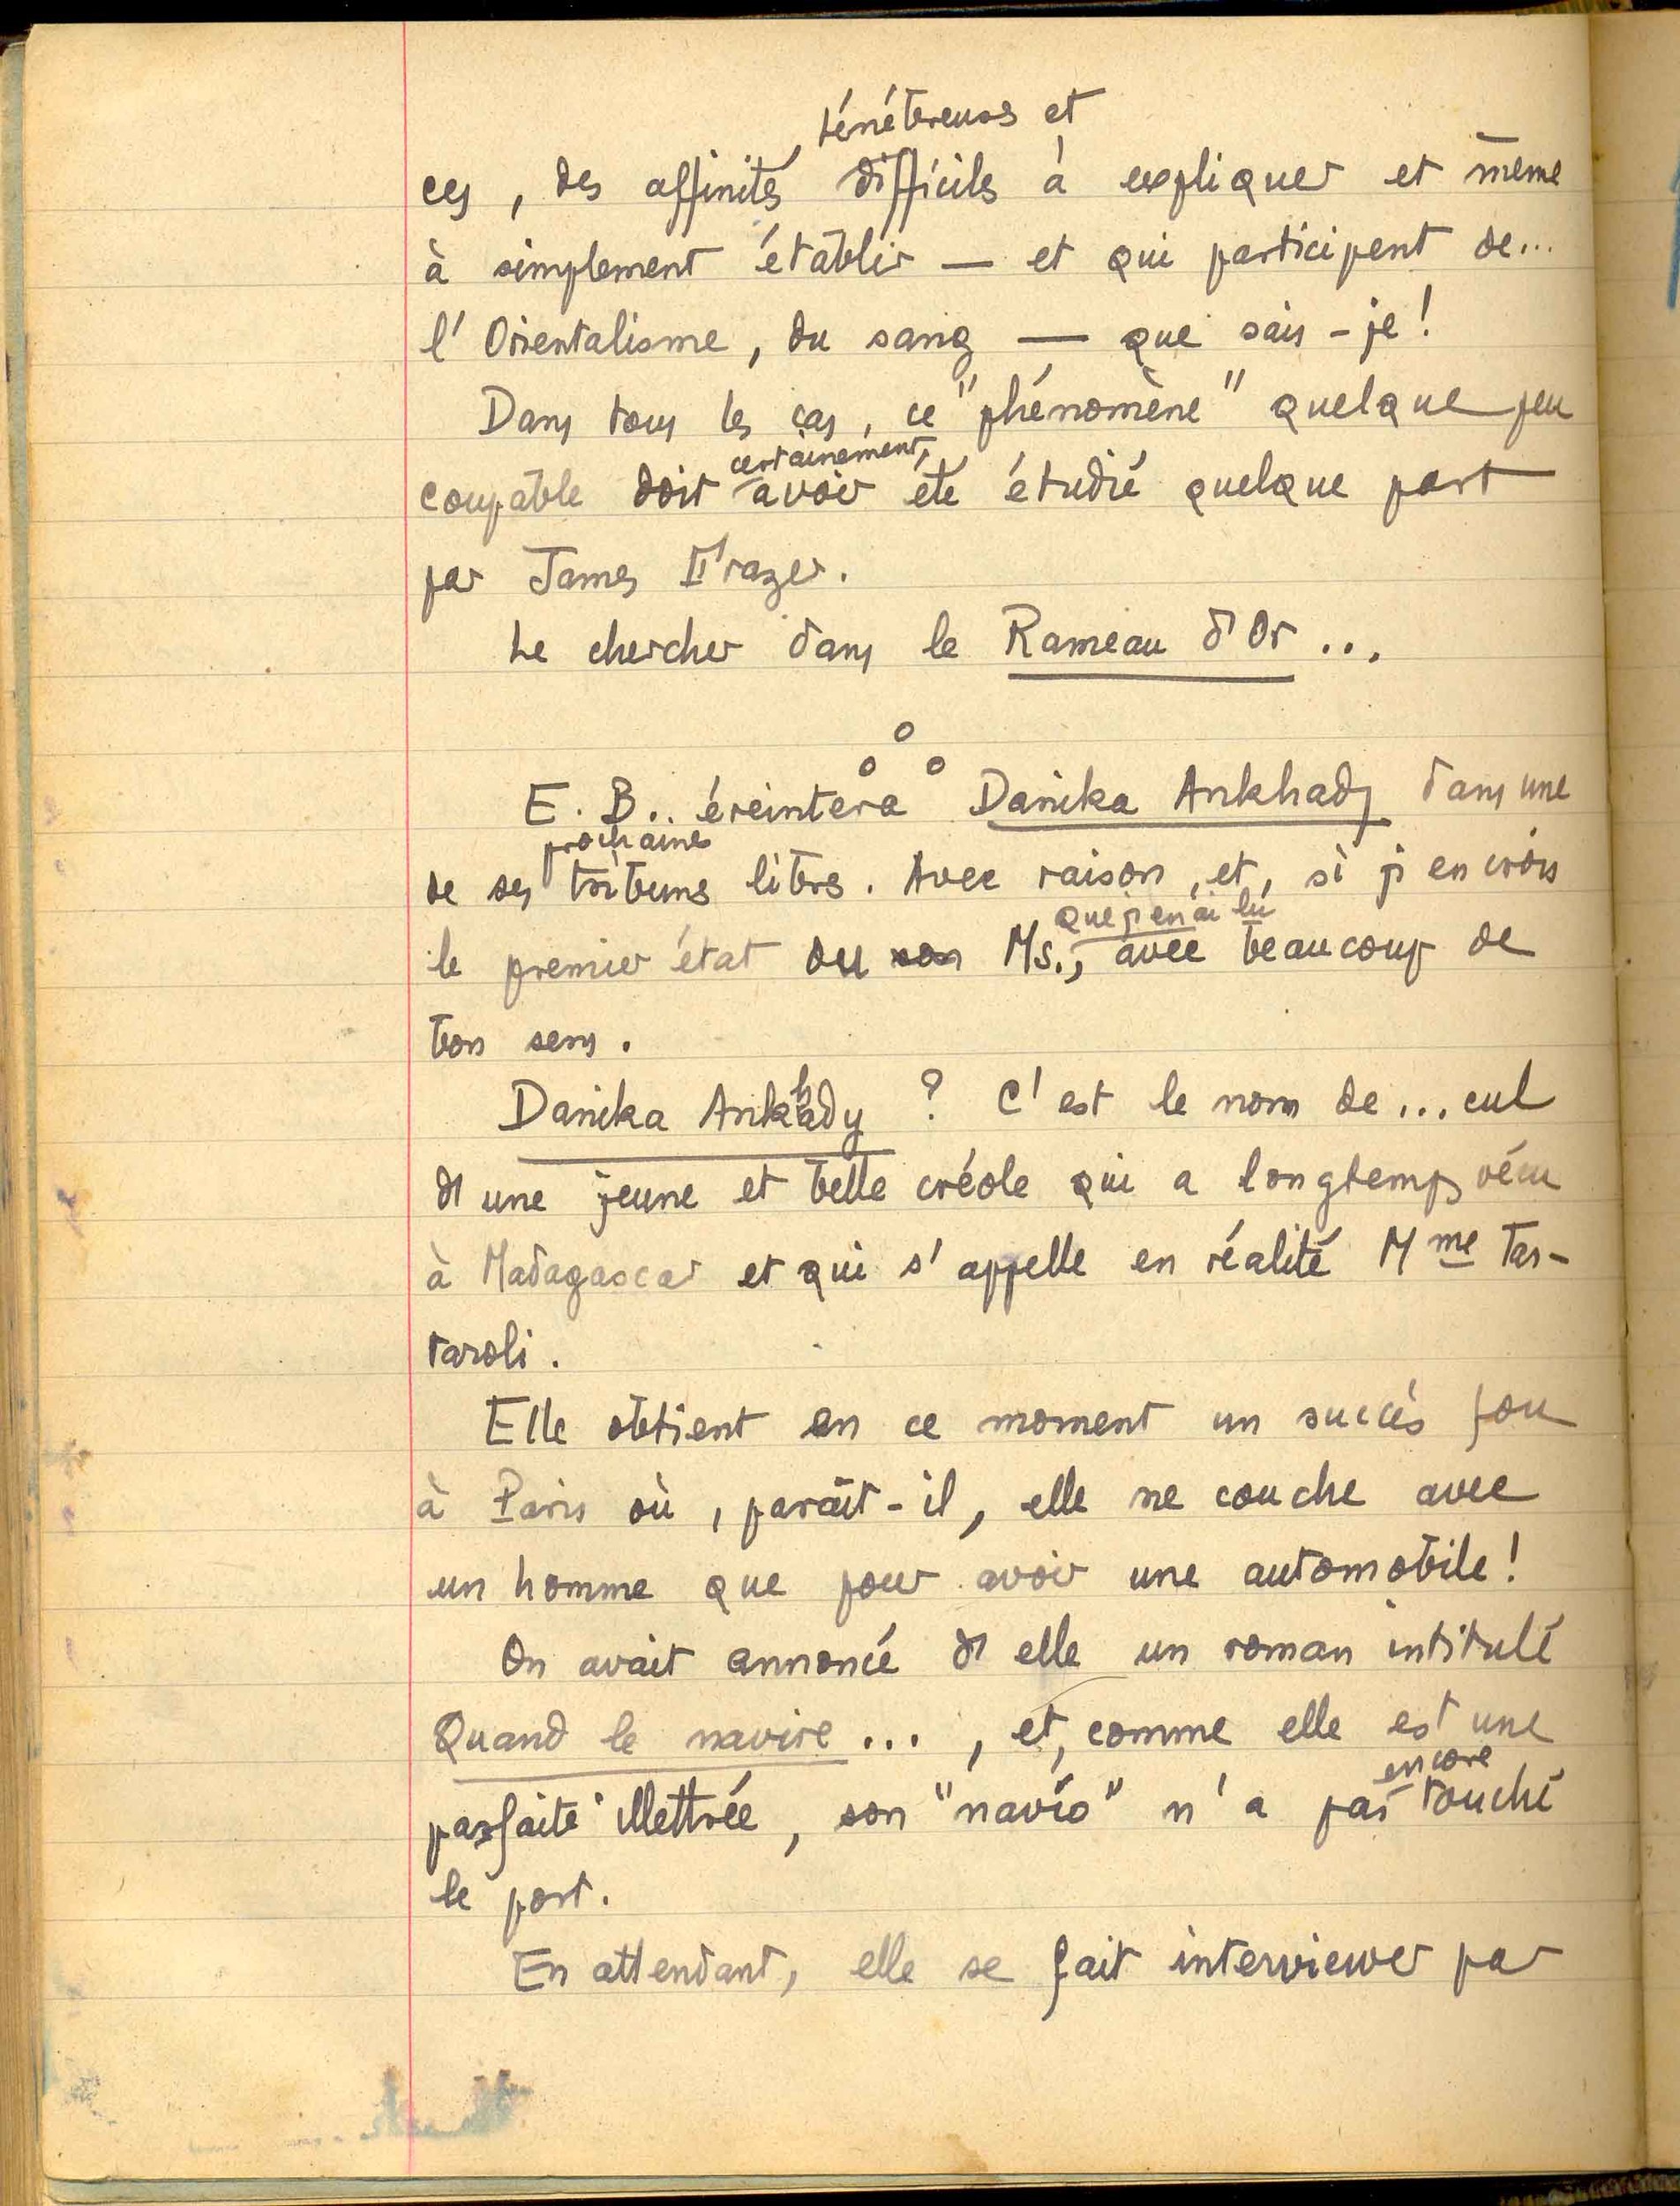 ténébreuses et
ces, des affinités difficiles à expliquer et même
à simplement établir — et qui participent de...
l'Orientalisme, du sang — que sais-je !
Dans tous les cas, ce "phénomène" quelque peu
certainement,
coupable doit avoir été étudié quelque part
par James Frazer.
Le chercher dans le Rameau d'Or ...
o
o o
E. B.. éreintera Danika Ankhady dans une
prochaines
de ses tribunes libres. Avec raison, et, si j'en crois
que j'en ai lu
le premier état du Ms., avec beaucoup de
bon sens.
Danika Ankhady ? C'est le nom de... cul
d'une jeune et belle créole qui a longtemps vécu
à Madagascar et qui s'appelle en réalité Mme Tar-
taroli.
Elle obtient en ce moment un succès fou
à Paris où, paraît-il, elle ne couche avec
un homme que pour avoir une automobile !
On avait annoncé d'elle un roman intitulé
Quand le navire ... , et, comme elle est une
encore
parfaite illettrée, son "navio" n'a pas touché
le port.
En attendant, elle se fait interviewer par